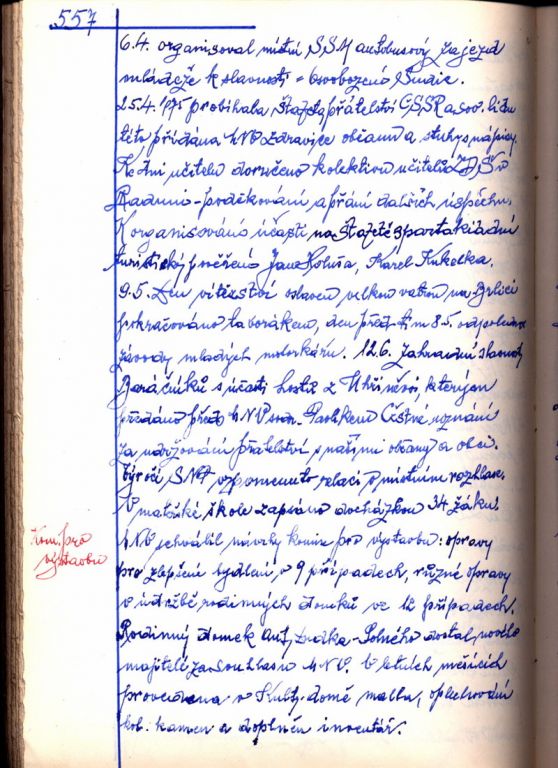 557
6.4. organisoval místní SSM autobusový zájezd
mládeže k slavnosti = osvobození Studie.
25.4. 1975 probíhala štafeta přátelství ČSSR a sov. lidu
této předána MNV zdravice občanů a stuhy s nápisy.
K dni učitelů doručeno kolektivu učitelů ZDŠ v
Radunii - poděkování a přání dalších úspěchů.
K organisováno účasti na štafetě spartakiádní
turistický pověřeno Jana Holuša, Karel Kukelka.
9.5. Den vítězství oslaven velkou vatrou na
pokračováno táborákem, den před tím 8.5. odpoledne
závody mladých motorkářů. 12.6. Zahradní slavnost
Baráčníků s účastí hostů z Uhříněvsi, kterým
předáno před. MNV sou. Pavlíkem Čestné uznání
za udržování přátelství s našimi občany a obcí.
Výročí SNP vzpomenuto relací v místním rozhlase.
V mateřské škole zapsáno docházkou 34 žáků.
Kom. pro
výstavbu
MNV schválil návrhy komise pro výstavbu: opravy
pro zlepšení bydlení v 9 případech, různé opravy
v údržbě rodinných domků ve 12 případech.
Rodinný domek Ant. dostal nového
majitele za souhlasu MNV. V letních měsících
provedena v Kult. domě malba, oplechování
kol. kamen a doplněn inventář.